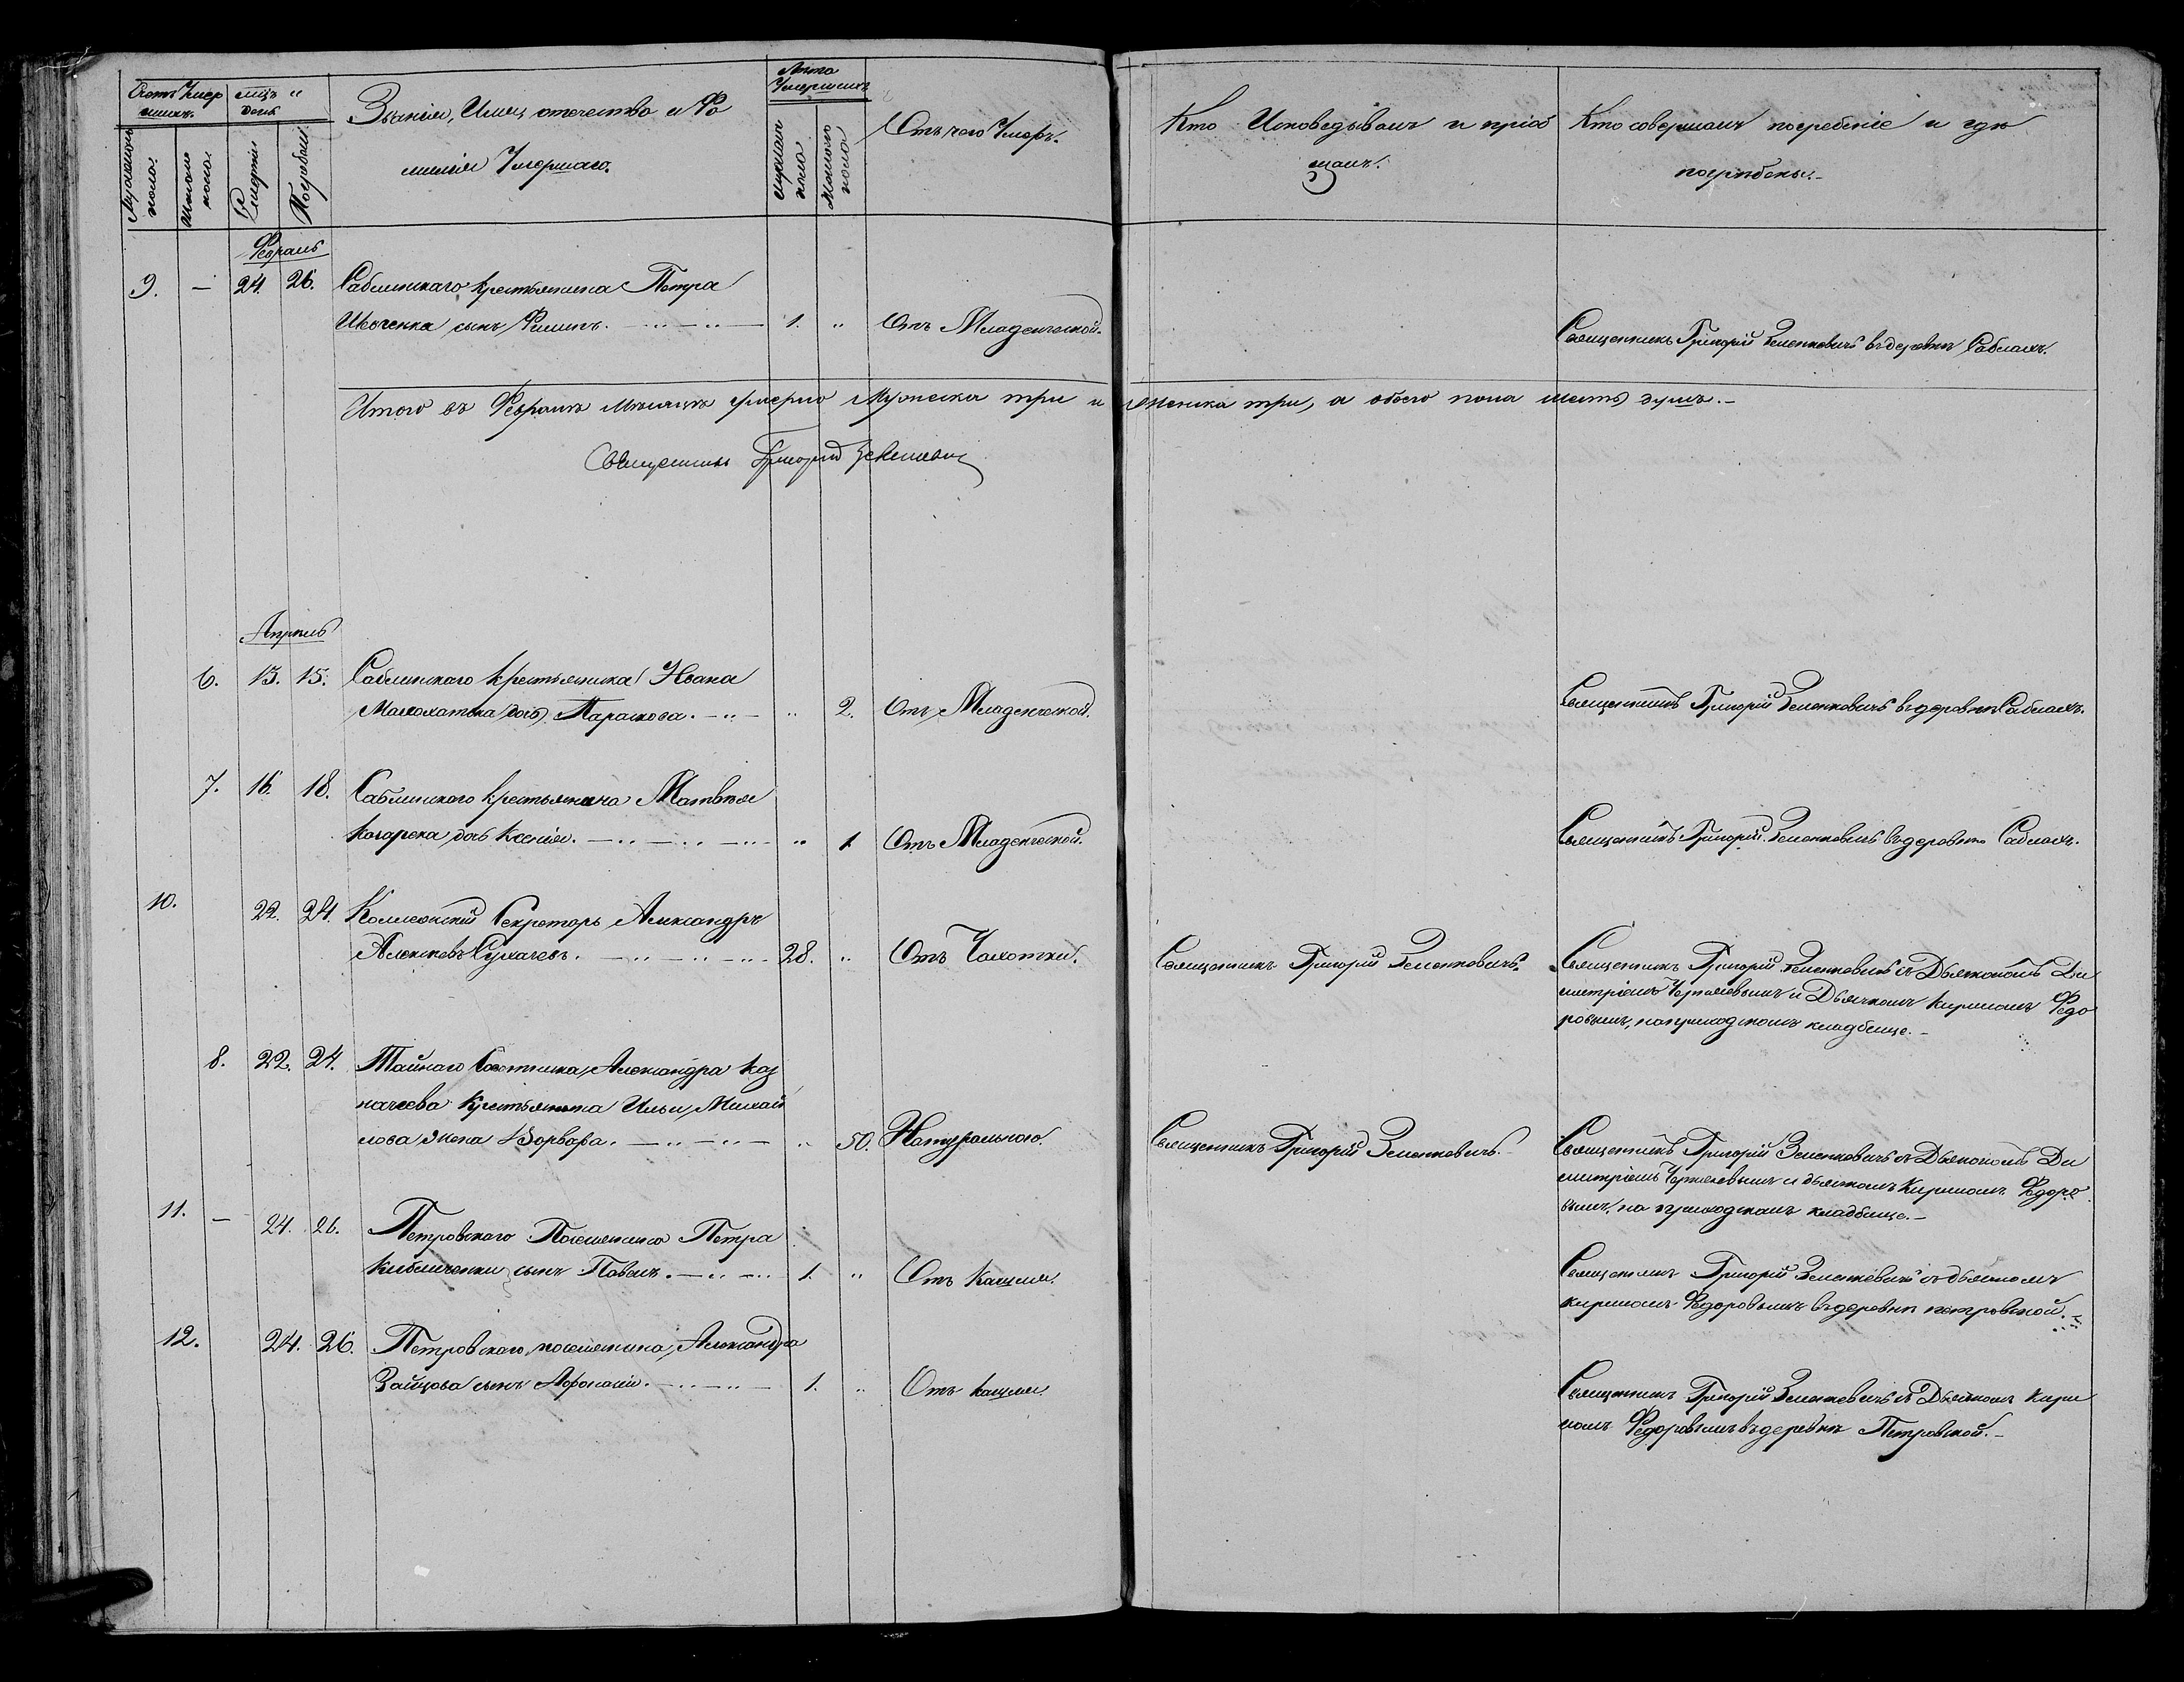 Счетъ Умер
шихъ.
Мужеска
пола.
Женска
пола.
мцъ и
день
Смерти
Погребен.
Званіе, Имя, отечество и Фа
милія Умершаго.
Лета
Умершихъ
мужеска
пола
женска
пола
Отъ чего Умеръ.
Кто Исповедывалъ и пріоб
щалъ.
Кто совершалъ погребеніе и где
погребены.-
Февраль
9. — 24. 26. Саблинскаго крестьянина Петра
сынъ Филипъ. 1. „ Отъ Младенческой.
Священникъ Григорій Зеленкевичъ въ деревне Саблахъ.
Итого въ Феврале месяце умерло Мужеска три и женска три, а обоего пола шесть душъ.-
Священникъ Григорій Зеленкевич
Апрель
6. 13. 15. Саблинскаго крестьянина Ивана
дочь Параскева. „ 2. Отъ Младенческой.
Священникъ Григорій Зеленкевичъ въ деревне Саблахъ.
7. 16. 18. Саблинскаго крестьянина Матвея
дочь Ксенія. „ 1. Отъ Младенческой.
Священникъ Григорій Зеленкевичъ въ деревне Саблахъ.
10. 22. 24. Коллежскій Секретарь Александръ
Алексеевъ Сухачевъ. 28. „ Отъ Чахотки.
Священникъ Григорій Зеленкевичъ.
Священникъ Григорій Зеленкевичъ съ Дьякономъ Ди
митріемъ и Дьячкомъ Кириломъ Федо
ровымъ, на приходскомъ кладбище.-
8. 22. 24. Тайнаго Советника, Александра Каз
начеева крестьянина Ильи Михай
лова жена Варвара. „ 50. Натуральною.
Священникъ Григорій Зеленкевичъ.-
Священникъ Григорій Зеленкевичъ съ Дьякономъ Ди
митріемъ и дьячкомъ Кириломъ Федоро
вымъ, на приходскомъ кладбище.-
11. — 24. 26. Петровскаго Поселянина Петра
сынъ Павелъ. 1. „ Отъ Кашля.
Священникъ Григорій Зеленкевичъ съ дьячкомъ
Кириломъ Федоровымъ въ деревне петровской.
12. 24. 26. Петровскаго поселянина Александра
Зайцова сынъ Афонасій. 1. „ Отъ кашля.
Священникъ Григорій Зеленкевичъ съ Дьячкомъ Кири
ломъ Федоровымъ въ деревне Петровской.-